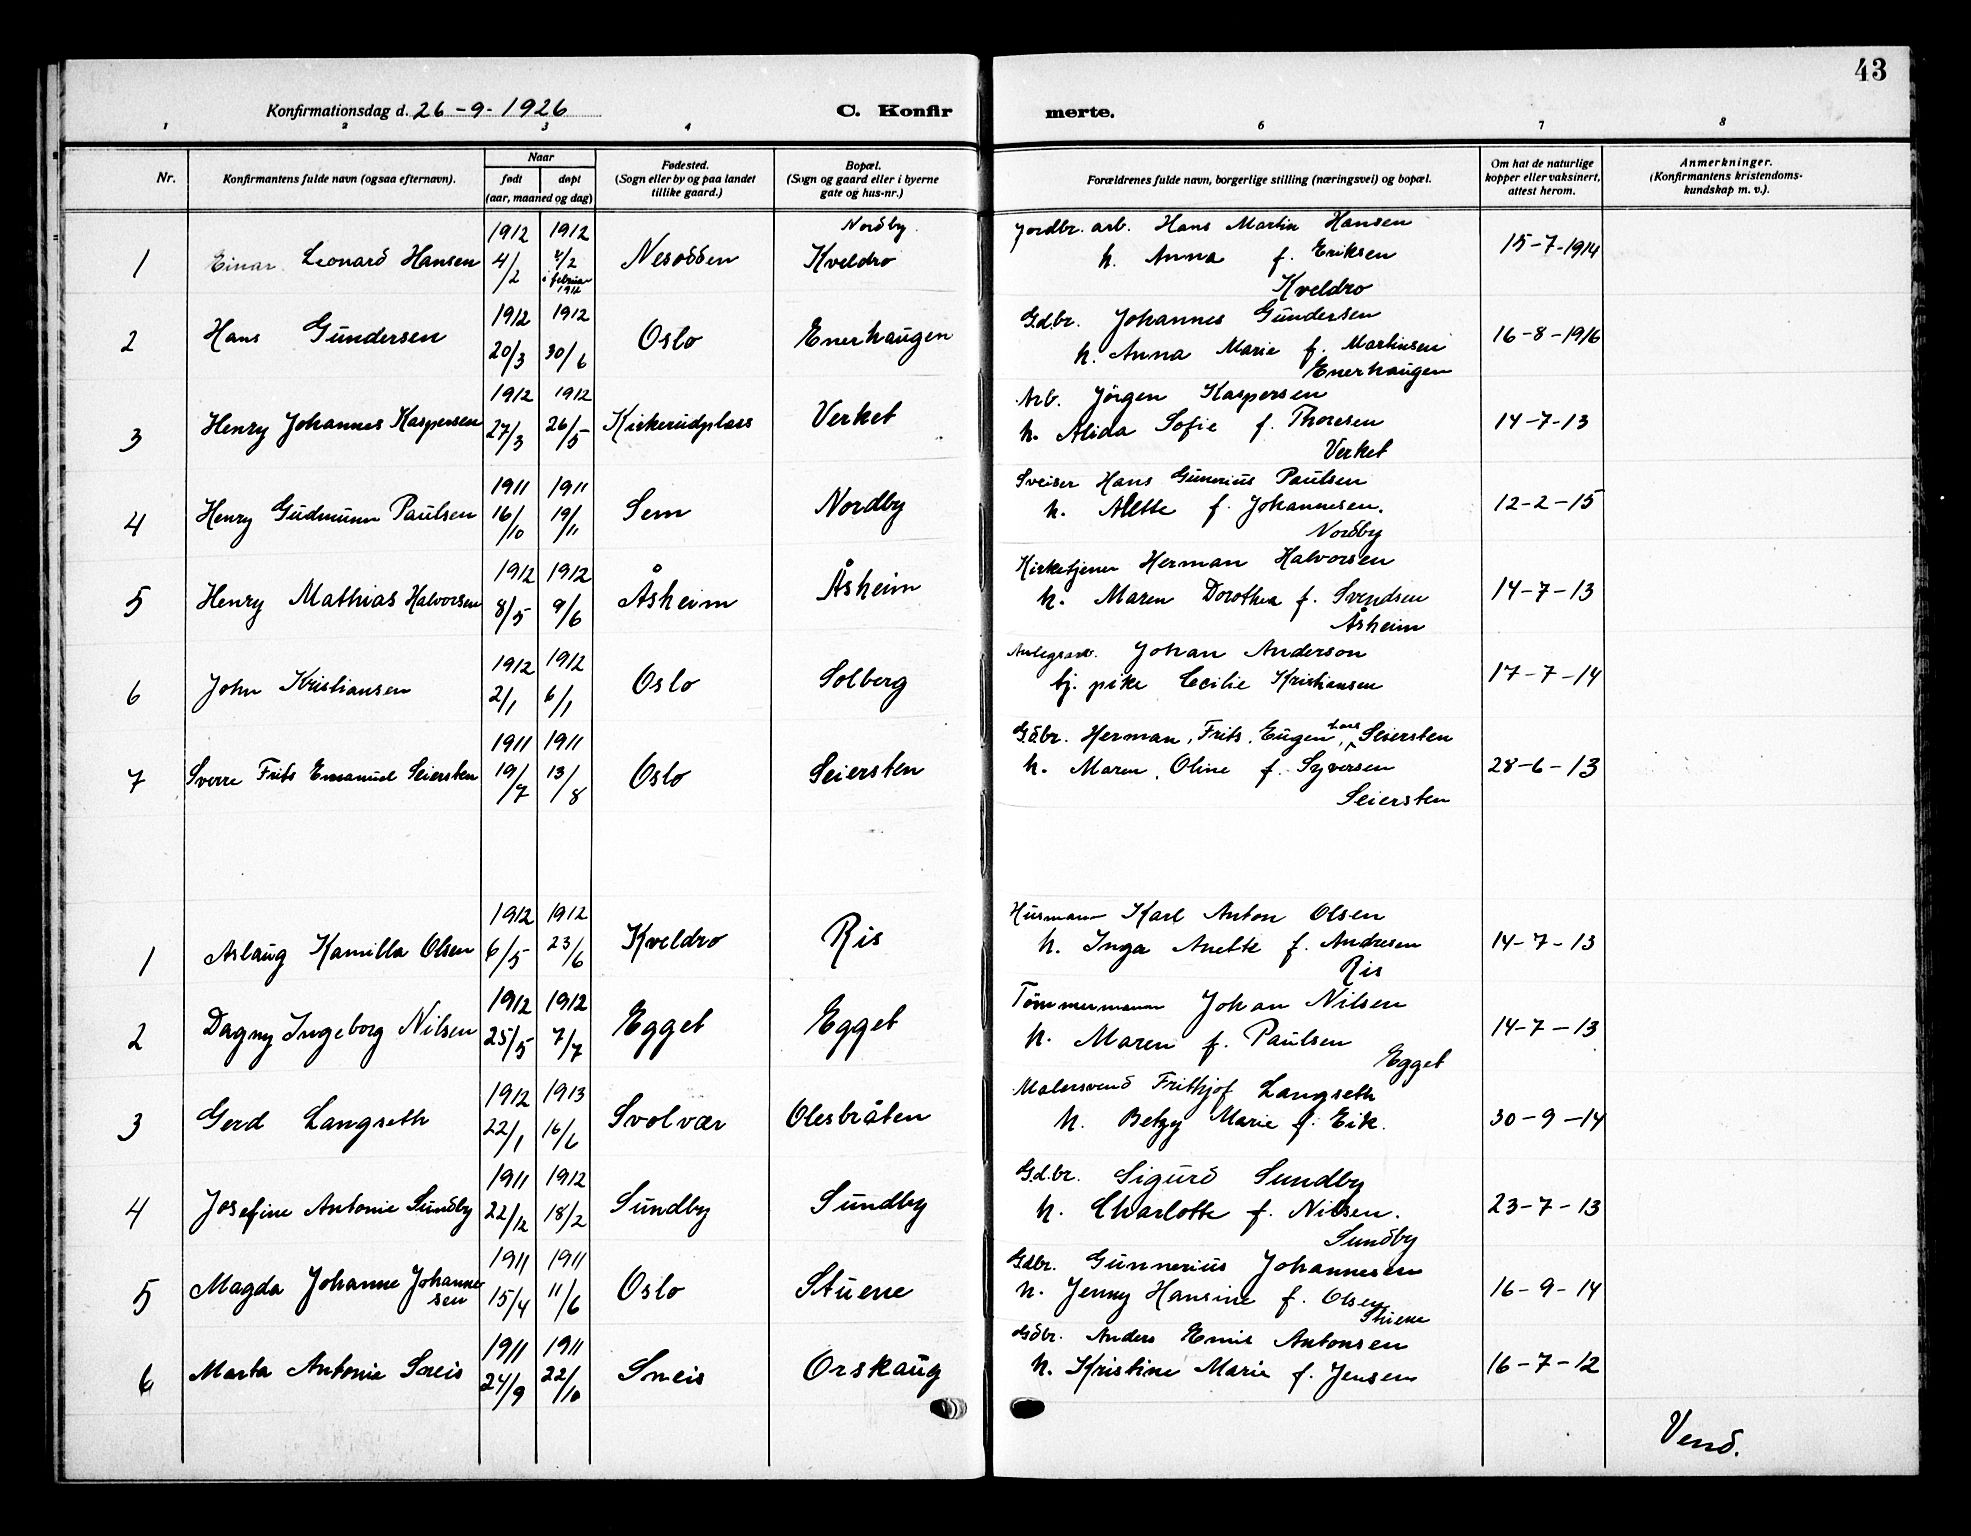 43
Konfirmationsdag d. 26-9-1926
C. Konfir
merte.
1 2 3 4 6 7 8
Nr.
Konfirmantens fulde navn (ogsaa efternavn).
Naar
født
døpt
(aar, maaned og dag)
Fødested.
(Sogn eller by og paa landet
tillike gaard.)
Bopæl.
(Sogn og gaard eller i byerne
gate og hus-nr.)
Forældrenes fulde navn, borgerlige stilling (næringsvei) og bopæl.
Om hat de naturlige
kopper eller vaksinert,
attest herom.
Anmerkninger.
(Konfirmantens kristendoms-
kundskap m. v.).
1912 1912 Nordby. Jordbr. arb. Hans Martin Hansen
1 Einar Leonard Hansen 4/2 /2 Nesodden Kveldro h. Anna f. Eriksen 15-7-1914
i februar 1912 Kveldro
1912 1912 Gdbr. Johannes Gundersen
2 Hans Gundersen 20/3 30/6 Oslo Enerhaugen h. Anna Marie f. Martinsen 16-8-1916
Enerhaugen
1912 1912 Arb. Jørgen Kaspersen
3 Henry Johannes Kaspersen 27/3 26/5 Kirkerudplass Verket h. Alida Sofie f. Thoresen 14-7-13
Verket
1911 1911 Sveiser Hans Gunerius Paulsen
4 Henry Gudmunn Paulsen 16/10 19/11 Sem Nordby h. Alette f. Johannesen. 12-2-15
Nordby
1912 1912 Kirketjener Herman Halvorsen
5 Henry Mathias Halvorsen 8/5 9/6 Åsheim Åsheim h. Maren Dorothea f. Svendsen 14-7-13
Åsheim
1912 1912 Johan Anderson
6 John Kristiansen 2/1 6/1 Oslo Solberg tj. pike Cecilie Kristiansen 17-7-14
1911 1911 Gdbr. Herman, Frits, Eugen, Lars Seiersten
7 Sverre Frits Emanuel Seiersten 19/7 13/8 Oslo Seiersten h. Maren, Oline f. Syversen 28-6-13
Seiersten
1912 1912 Husmann Karl Anton Olsen
1 Aslaug Kamilla Olsen 6/5 23/6 Kveldro Ris h. Inga Anette f. Andresen 14-7-13
Ris
1912 1912 Tømmermann Johan Nilsen
2 Dagny Ingeborg Nilsen 25/5 7/7 Egget Egget h. Maren f. Paulsen 14-7-13
Egget
1912 1913 Malersvend Frithjof Langseth
3 Gerd Langseth 22/1 16/6 Svolvær Olesbråten h. Betzy Marie f. Eik. 30-9-14
1911 1912 Gd.br. Sigurd Sundby
4 Josefine Antonie Sundby 22/12 18/2 Sundby Sundby h. Charlotte f. Nilsen. 23-7-13
Sundby
1911 1911 Gdbr. Gunnerius Johannesen
5 Magda Johanne Johanne
sen 15/4 11/6 Oslo Stuene h. Jenny Hansine f. Olsen 16-9-14
1911 1911 Gdbr. Anders Emil Antonsen
6 Marta Antonie Sneis 24/9 22/10 Sneis Orskaug h. Kristine Marie f. Jensen 16-7-12
Vend.